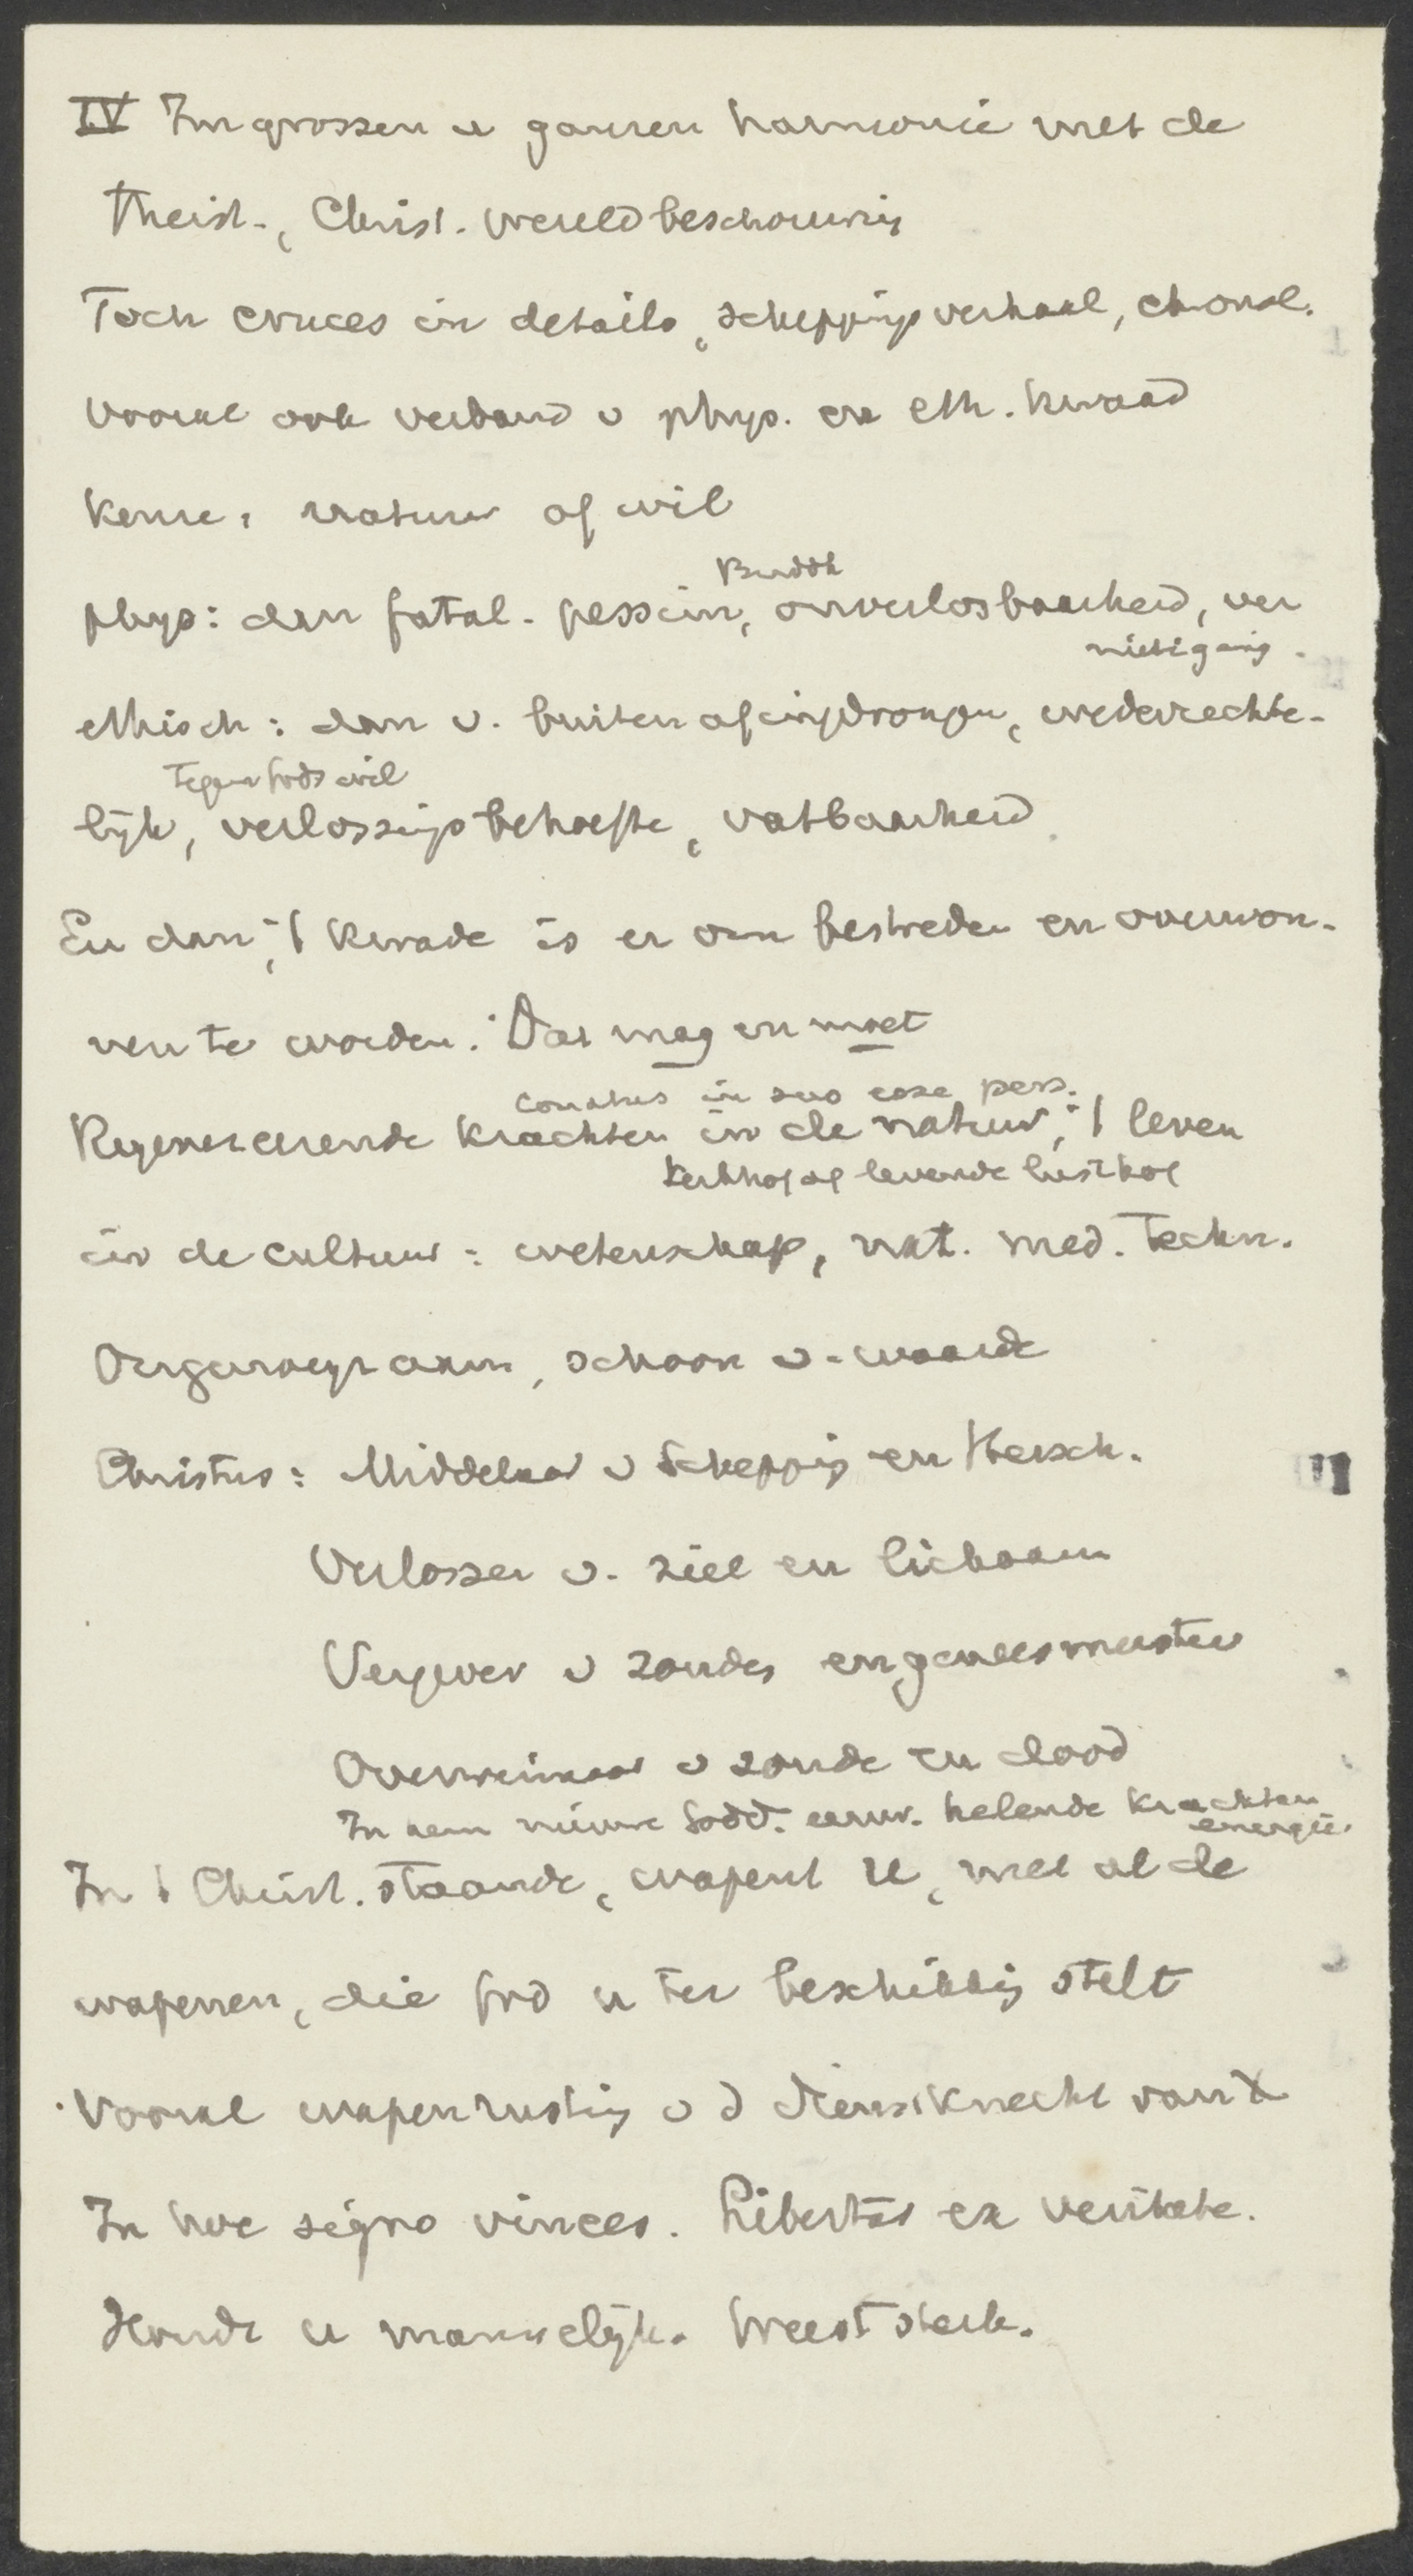 IV Im grossen u ganzen harmonie met de
Theist., Christ. wereldbeschouwing
Toch cruces in details, scheppingsverhaal, chonol.
Vooral ook verband v phys. en eth. kwaad
Keuze: natuur of wil
Buddh
phys: dan fatal. pessim, onverlosbaarheid, ver
nietiging.
ethisch: dan v. buiten af ingedrongen, wederrechte-
tegen Gods wil
lijk, verlossingsbehoefte, vatbaarheid
En dan, 't kwade is er om bestreden en overwon-
nen te worden. Dat mag en moet
conatus in suo esse pers.
Regenererende krachten in de natuur, 't leven
Kerkhof of levende lusthof
in de cultuur: wetenschap, nat. med. techn.
schoon v. waarde
Christus: Middelaar v Schepping en Hersch.
Verlosser v. ziel en lichaam
Vergever v zonden en geneesmeester
Overwinnaar v zonde en dood
In hem nieuwe Godd. eeuw. helende krachten
energie
In 't Christ. staande, wapent U, met al de
wapenen, die God u ter beschikking stelt
Vooral wapenrusting v d dienstknecht van X
In hoc signo vinces. Libertas ex veritate.
Houdt u mannelijk. Weest sterk.